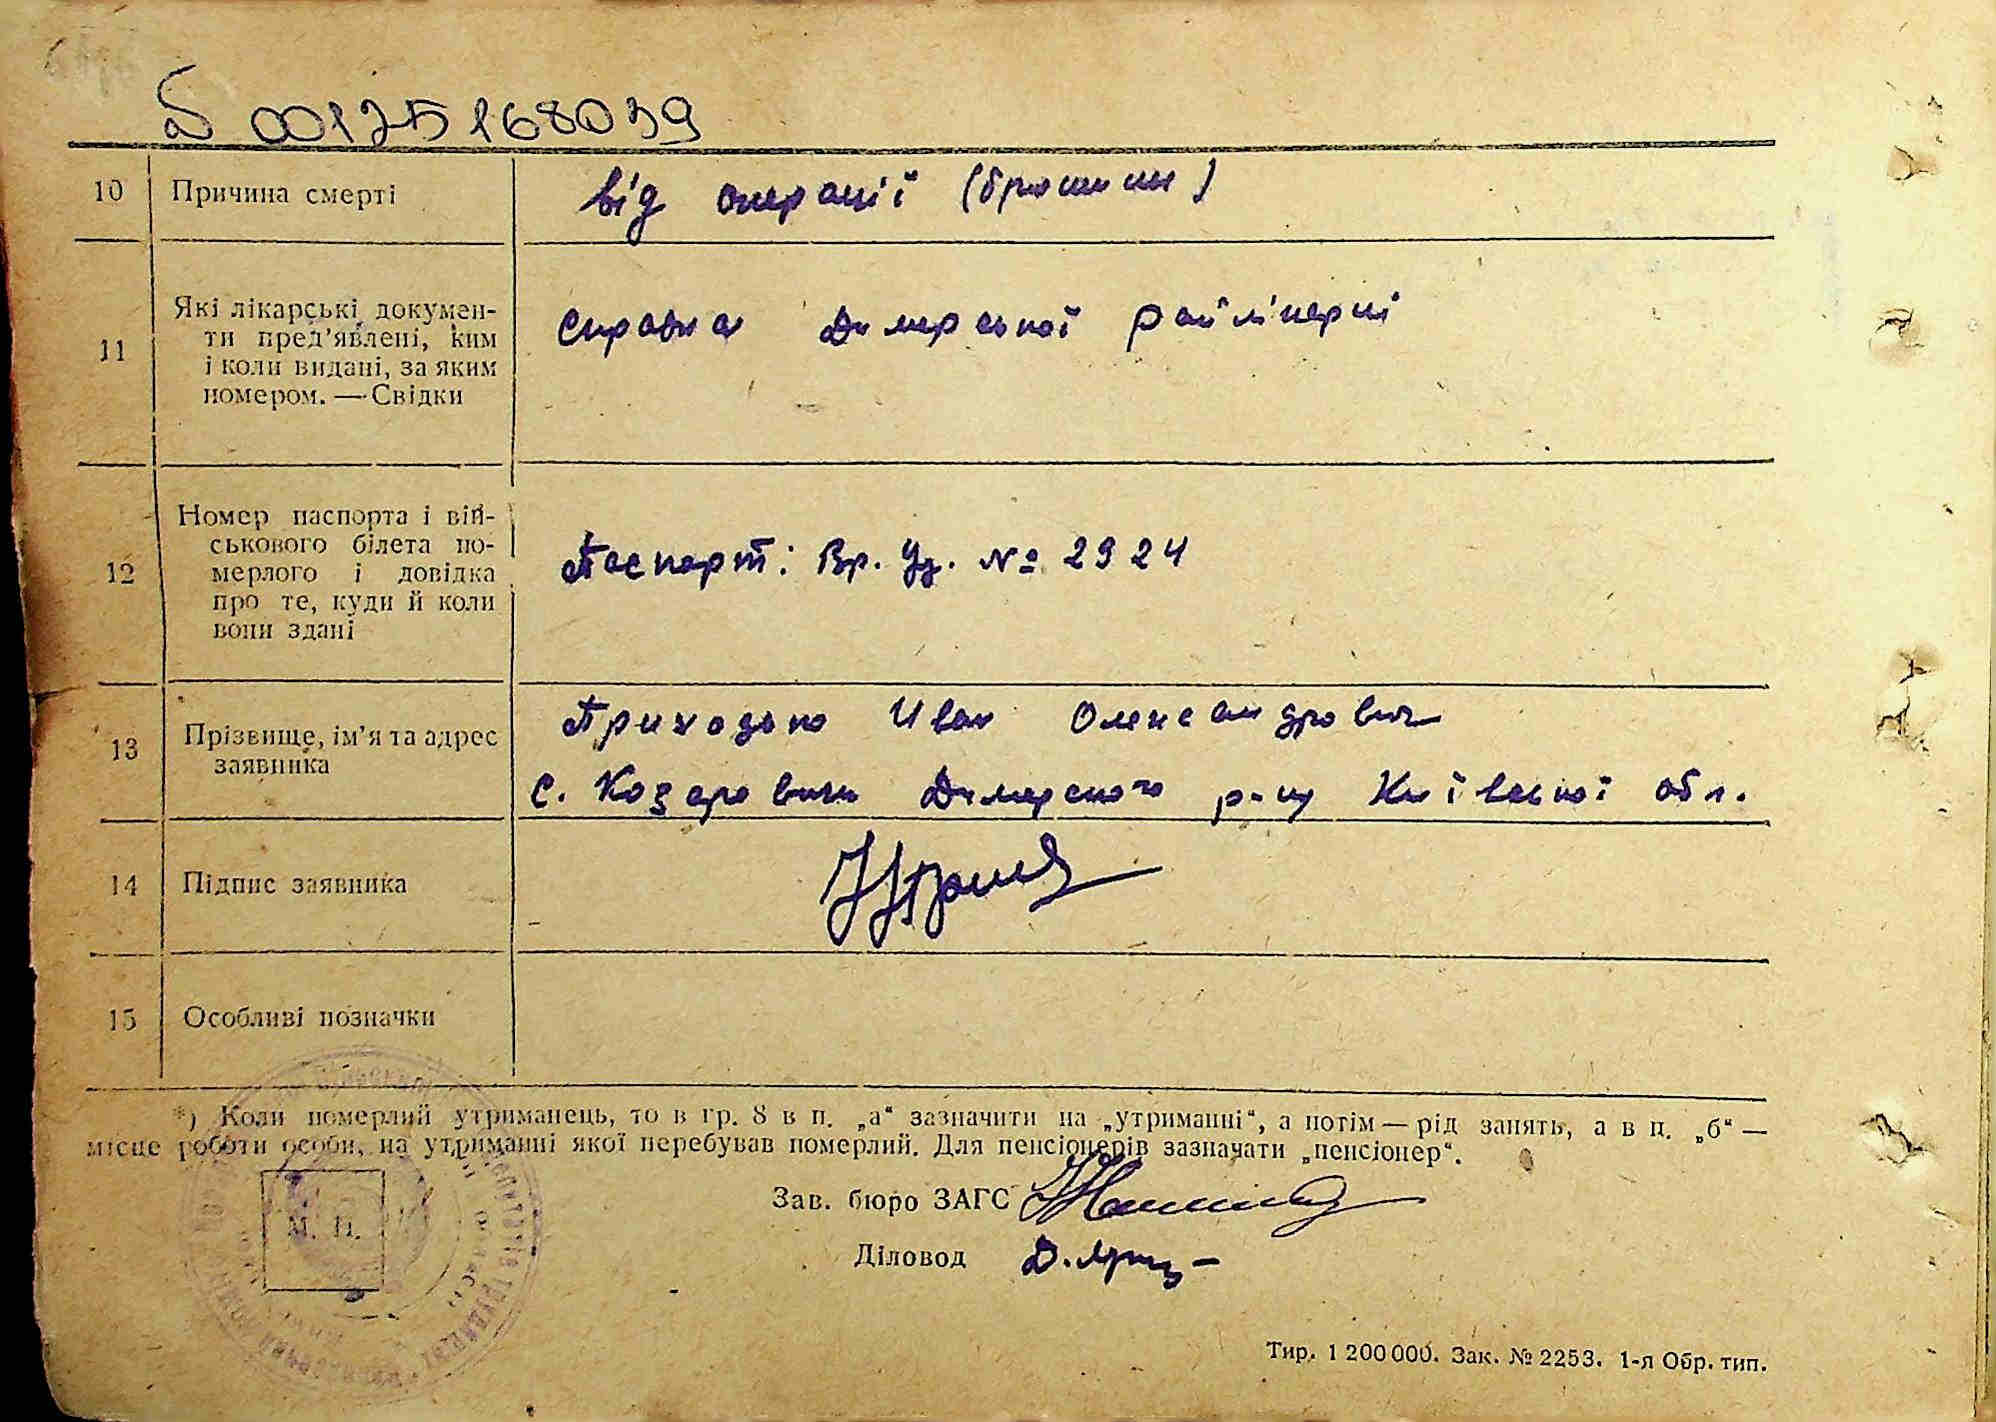 00125168039
10 Причина смерті від операції (брюшини)
11 Які лікарські докумен-
ти пред'явлені, ким
і коли видані, за яким
номером. — Свідки
справка Димерської райлікарні
12 Номер паспорта і вій-
ськового білета по-
мерлого і довідка
про те, куди й коли
вони здані
Паспорт: Вр. Уд. № 2924
13 Прізвище, ім'я та адрес
заявника
Приходько Иван Олександрович
с. Козаровичи Димерского р-ну Київської обл.
14 Підпис заявника
15 Особливі позначки
*) Коли померлий утриманець, то в гр. 8 в п. „а“ зазначити на „утриманні“, а потім — рід занять, а в п. „б“ —
місце роботи особи, на утриманні якої перебував померлий. Для пенсіонерів зазначати „пенсіонер“.
М. П.
Зав. бюро ЗАГС
Діловод
Тир. 1 200 000. Зак. № 2253. 1-я Обр. тип.